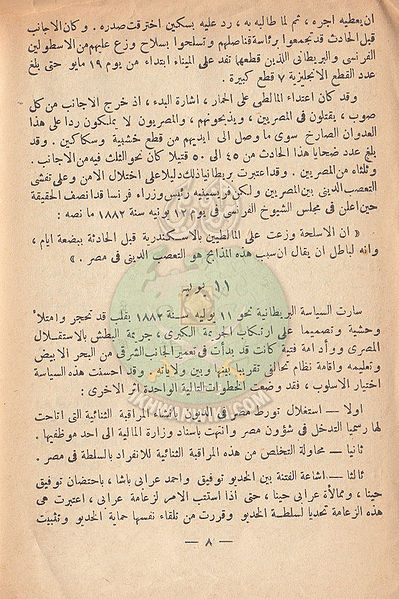 ان يعطيه اجره ، ثم لما طالبه به ، رد عليه بسكين اخترقت صدره . وكان الاجانب
قبل الحادث قد تجمعوا برئاسة قناصلهم وتسلحوا بسلاح وزع عليهم من الاسطولين
الفرنسى والبريطانى اللذين قطعها تفد على الميناء ابتداء من يوم ١٩ مايو حتى بلغ
عدد القطع الانجليزية ٧ قطع كبيرة .
وقد كان اعتداء المالطى على الحمار ، اشارة البدء ، اذ خرج الاجانب من كل
صوب ، يقتلون فى المصريين ، ويذبحونهم ، والمصريون لا يملكون ردا على هذا
العدوان الصارخ سوى ما وصل الى ايديهم من قطع خشبية وسكاكين . وقد
بلغ عدد ضحايا هذا الحادث من ٤٥ الى ٥٠ قتيلا كان نحو الثلث فيه من الاجانب .
وثلثاه من المصريين . وقد اعتبرت بريطانيا ذلك دليلا على اختلال الامن وعلى تفشى
التعصب الدينى بين المصريين ولكن فرايسينيه رئيس وزراء فرنسا قد انصف الحقيقة
حين اعلن فى مجلس الشيوخ الفرنسى فى يوم ١٢ يونيه سنة ١٨٨٢ ما نصه :
« ان الاسلحة وزعت على المالطيين بالاسكندرية قبل الحادثة ببضعة ايام ،
وانه لباطل ان يقال ان سبب هذه المذابح هو التعصب الدينى فى مصر . »
١١ يوليه
سارت السياسة البريطانية نحو ١١ يوليه سنة ١٨٨٢ بقلب قد تحجر وامتلأ
وحشية وتصميما على ارتكاب الجريمة الكبرى ، جريمة البطش بالاستقلال
المصرى ووأد امة فتية كانت قد بدأت فى تعمير الجانب الشرقى من البحر الابيض
وتعليمه واقامة نظام تحالفى تقريبا بينها وبين ولاياته . وقد احسنت هذه السياسة
اختيار الاسلوب ، فقد وضعت الخطوات التالية الواحدة اثر الاخرى :
اولا — استغلال تورط مصر فى الديون بانشاء المراقبة الثنائية التى اتاحت
لها رسميا التدخل فى شؤون مصر وانتهت باسناد وزارة المالية الى احد موظفيها .
ثانيا — محاولة التخلص من هذه المراقبة الثنائية للانفراد بالسلطة فى مصر .
ثالثا — اشاعة الفتنة بين الخديو توفيق واحمد عرابى باشا ، باحتضان توفيق
حينا ، وممالأة عرابى حينا ، حتى اذا استتب الامر لزعامة عرابى ، اعتبرت هى
هذه الزعامة تحديا لسلطة الخديو وقررت من تلقاء نفسها حماية الخديو وتثبيت
— ٨ —